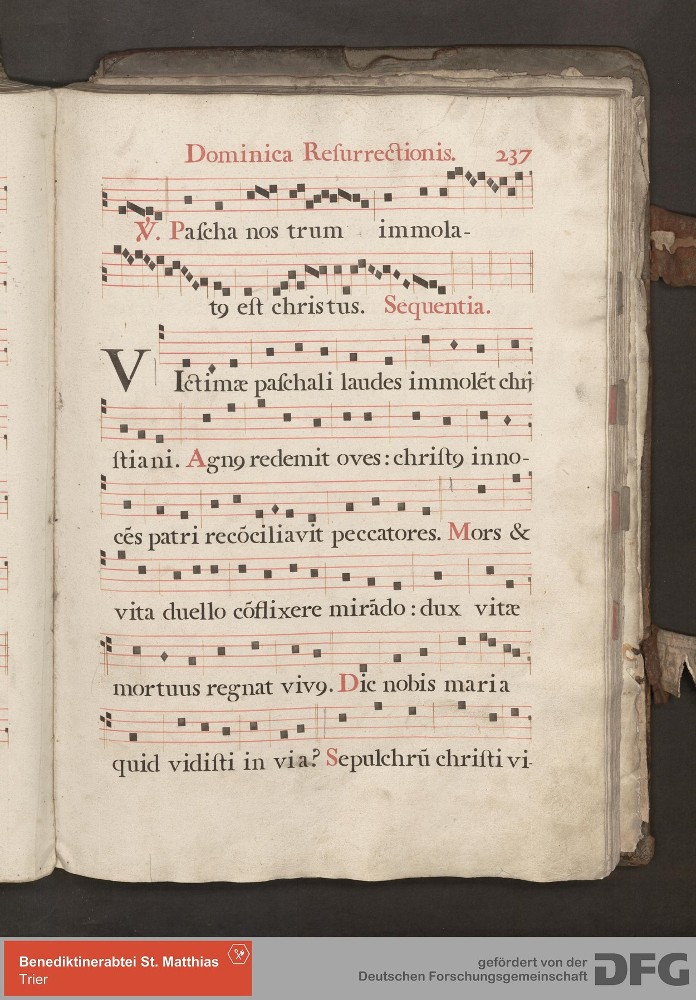 Dominica Reſurrectionis. 237
℣. Paſcha nos trum immola-
tꝯ eſt chriſtus. Sequentia.
VIctimæ paſchali laudes immolẽt chri-
ſtiani. Agnꝯ redemit oves: chriſtꝯ inno-
cẽs patri recõciliavit peccatores. Mors &
vita duello cõflixere mirãdo: dux vitæ
mortuus regnat vivꝯ. Dic nobis maria
quid vidiſti in via? Sepulchrũ chriſti vi-
Benediktinerabtei St. Matthias
Trier
gefördert von der
Deutschen Forschungsgemeinschaft
DFG